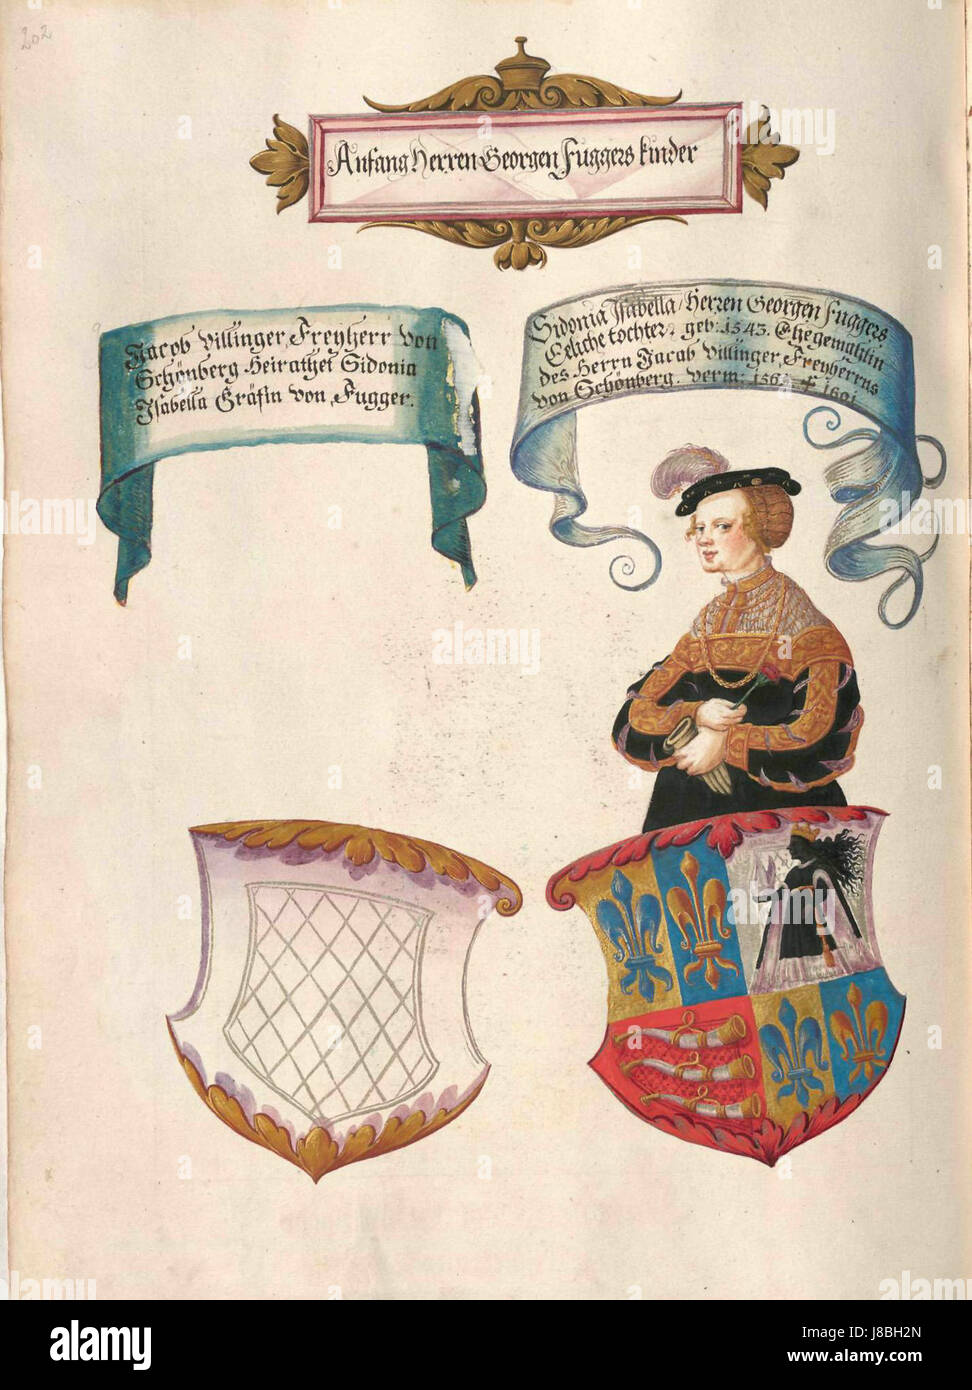 202
Anfang Herren Georgen Fuggers kinder
Jacob Villinger Freyherr von
Schönberg Heirathet Sidonia
Isabella Gräfin von Fugger.
Sidonia Isabella / Herren Georgen Fuggers
Eeliche tochter, geb: 1543. Ehegemahlin
des Herrn Jacab Villinger, Freyherrns
von Schönberg. verm: † 1601
alamy
www.alamy.com
Image ID: J8BH2N